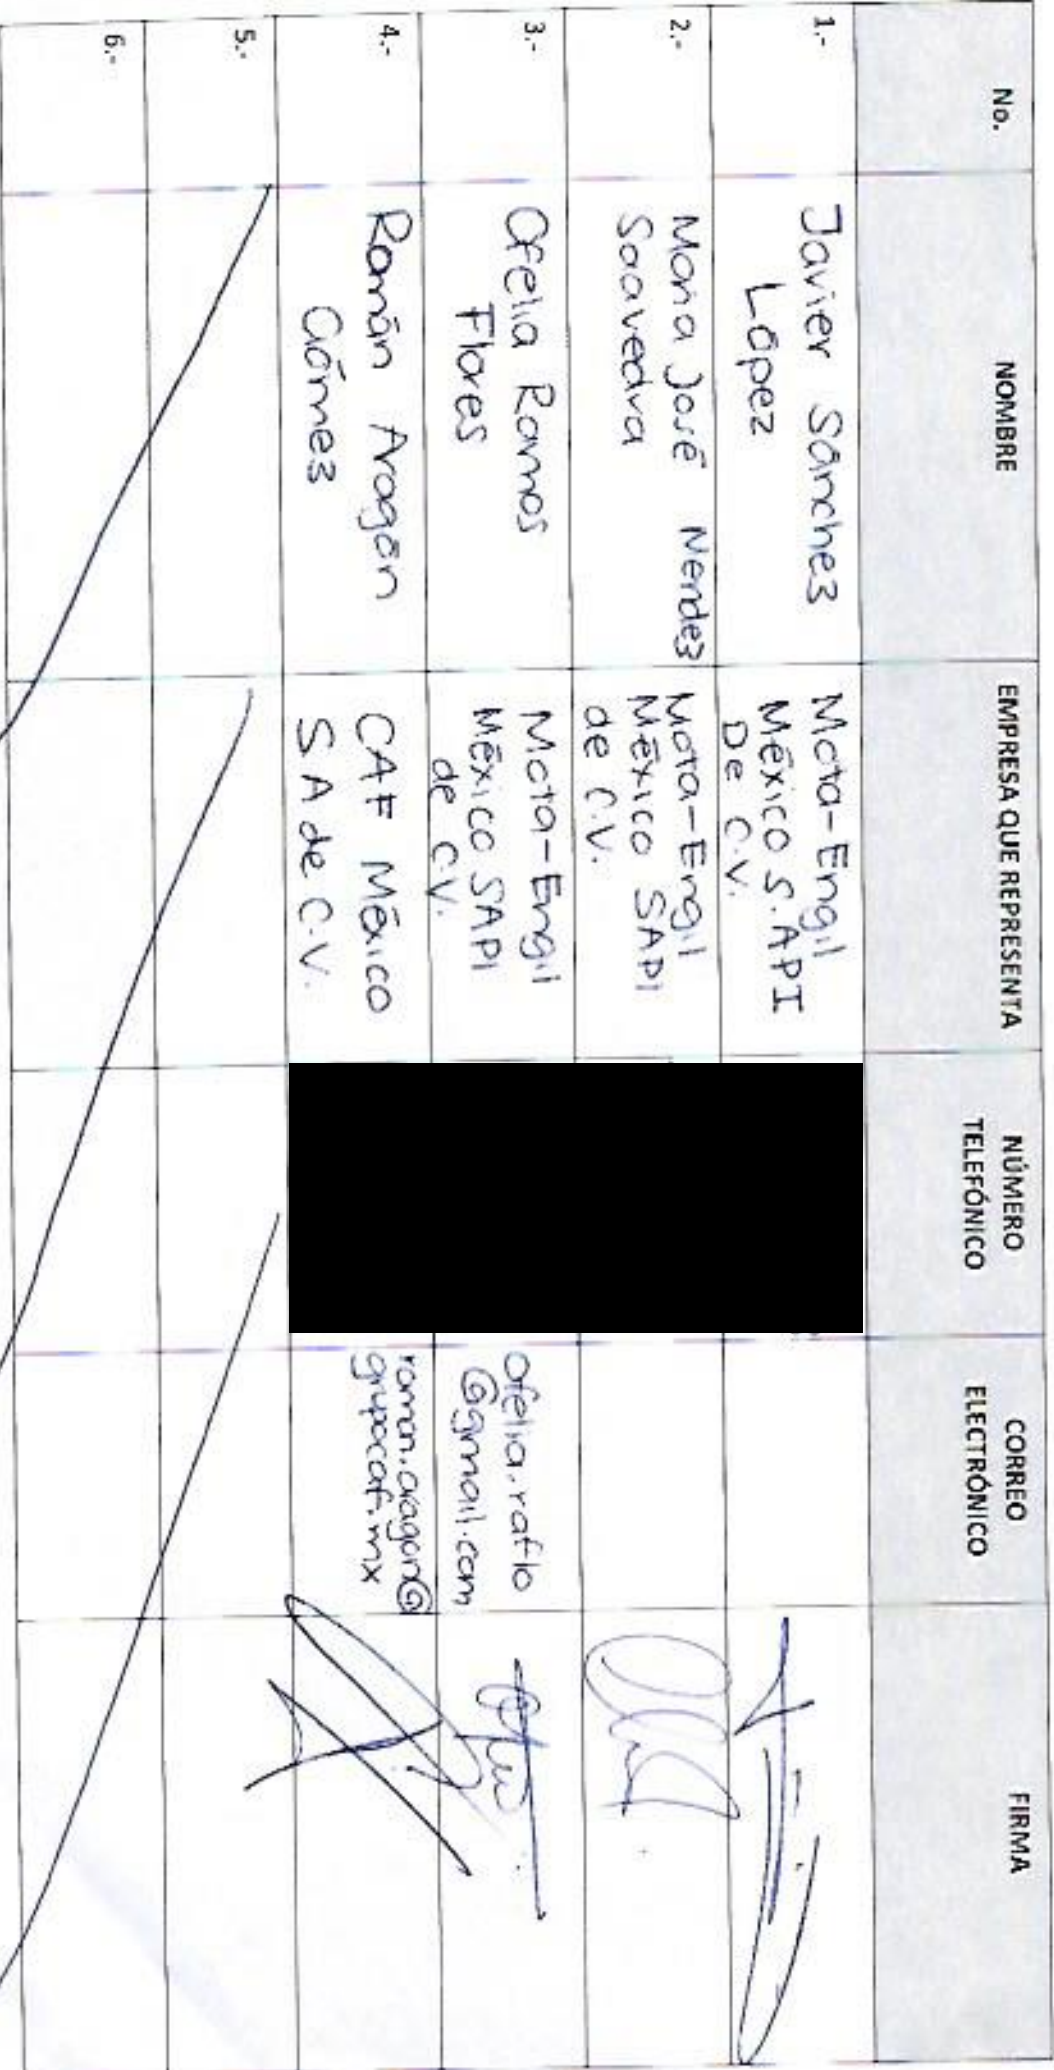 No. NOMBRE EMPRESA QUE REPRESENTA NÚMERO TELEFÓNICO CORREO ELECTRÓNICO FIRMA
1.-
Javier Sánchez
López
Mota-Engil
México S.API
De C.V.
2.-
Maria José Mendez
Saavedra
Mota-Engil
México SAPI
de C.V.
3.-
Ofelia Ramos
Flores
Mota-Engil
México SAPI
de C.V.
ofelia.raflo
@gmail.com
4.-
Román Aragón
Gómez
CAF México
SA de C.V.
roman.aragon@
grupocaf.mx
5.-
6.-